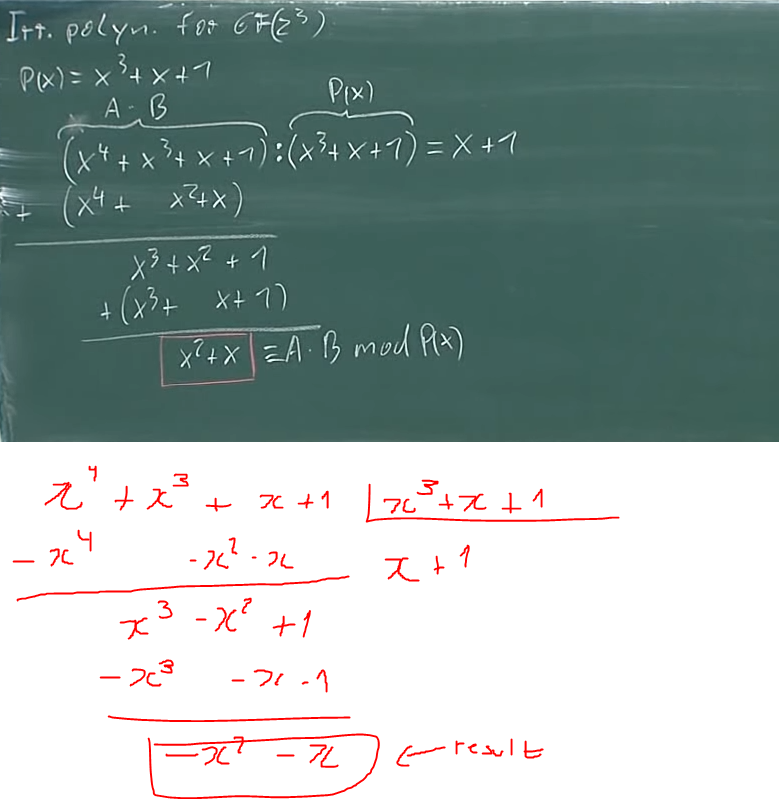 Irr. polyn. for GF(2³)
P(x) = x³ + x + 1
A · B P(x)
(x⁴ + x³ + x + 1) : (x³ + x + 1) = x + 1
+ (x⁴ + x² + x)
x³ + x² + 1
+ (x³ + x + 1)
x² + x ≡ A · B mod P(x)
x⁴ + x³ + x + 1 | x³ + x + 1
- x⁴ - x² - x x + 1
x³ - x² + 1
- x³ - x - 1
- x² - x ← result